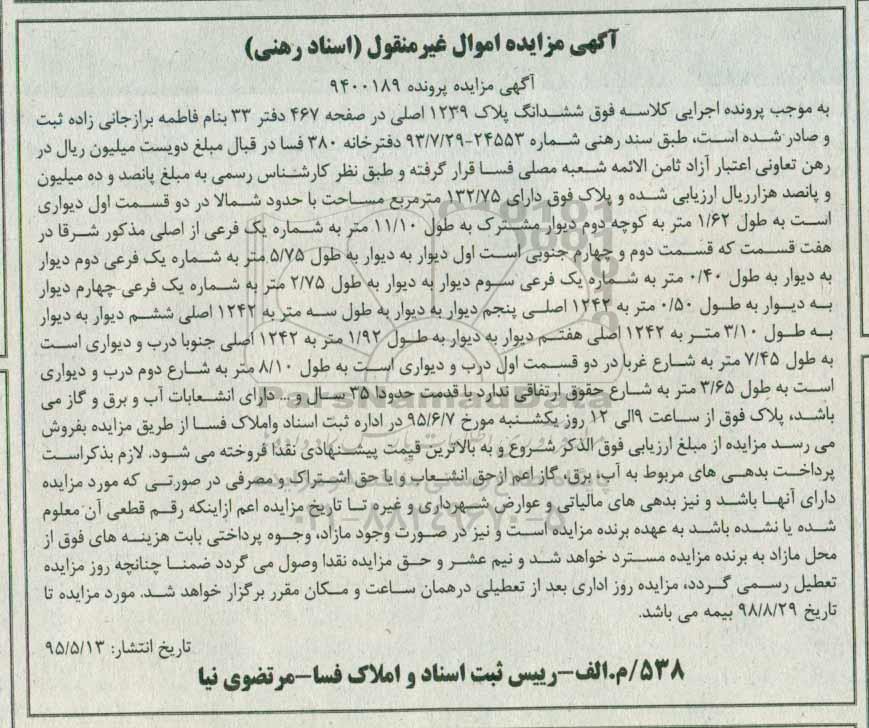 آگهی مزایده اموال غیرمنقول (اسناد رهنی)
آگهی مزایده پرونده ۹۴۰۰۱۸۹
به موجب پرونده اجرایی کلاسه فوق ششدانگ پلاک ۱۲۳۹ اصلی در صفحه ۴۶۷ دفتر ۳۳ بنام فاطمه برازجانی زاده ثبت
و صادر شده است، طبق سند رهنی شماره ۲۴۵۵۳-۹۳/۷/۲۹ دفترخانه ۳۸۰ فسا در قبال مبلغ دویست میلیون ریال در
رهن تعاونی اعتبار آزاد ثامن الائمه شعبه مصلی فسا قرار گرفته و طبق نظر کارشناس رسمی به مبلغ پانصد و ده میلیون
و پانصد هزارریال ارزیابی شده و پلاک فوق دارای ۱۳۲/۷۵ مترمربع مساحت با حدود شمالا در دو قسمت اول دیواری
است به طول ۱/۶۲ متر به کوچه دوم دیوار مشترک به طول ۱۱/۱۰ متر به شماره یک فرعی از اصلی مذکور شرقا در
هفت قسمت که قسمت دوم و چهارم جنوبی است اول دیوار به دیوار به طول ۵/۷۵ متر به شماره یک فرعی دوم دیوار
به دیوار به طول ۰/۴۰ متر به شماره یک فرعی سوم دیوار به دیوار به طول ۲/۷۵ متر به شماره یک فرعی چهارم دیوار
به دیوار به طول ۰/۵۰ متر به ۱۲۴۲ اصلی پنجم دیوار به دیوار به طول سه متر به ۱۲۴۲ اصلی ششم دیوار به دیوار
به طول ۳/۱۰ متر به ۱۲۴۲ اصلی هفتم دیوار به دیوار به طول ۱/۹۲ متر به ۱۲۴۲ اصلی جنوبا درب و دیواری است
به طول ۷/۴۵ متر به شارع غربا در دو قسمت اول درب و دیواری است به طول ۸/۱۰ متر به شارع دوم درب و دیواری
است به طول ۳/۶۵ متر به شارع حقوق ارتفاقی ندارد با قدمت حدودا ۳۵ سال و .. دارای انشعابات آب و برق و گاز می
باشد، پلاک فوق از ساعت ۹الی ۱۲ روز یکشنبه مورخ ۹۵/۶/۷ در اداره ثبت اسناد واملاک فسا از طریق مزایده بفروش
می رسد مزایده از مبلغ ارزیابی فوق الذکر شروع و به بالاترین قیمت پیشنهادی نقدا فروخته می شود. لازم بذکراست
پرداخت بدهی های مربوط به آب، برق، گاز اعم ازحق انشعاب و یا حق اشتراک و مصرفی در صورتی که مورد مزایده
دارای آنها باشد و نیز بدهی های مالیاتی و عوارض شهرداری و غیره تا تاریخ مزایده اعم ازاینکه رقم قطعی آن معلوم
شده یا نشده باشد به عهده برنده مزایده است و نیز در صورت وجود مازاد، وجوه پرداختی بابت هزینه های فوق از
محل مازاد به برنده مزایده مسترد خواهد شد و نیم عشر و حق مزایده نقدا وصول می گردد ضمنا چنانچه روز مزایده
تعطیل رسمی گردد، مزایده روز اداری بعد از تعطیلی درهمان ساعت و مکان مقرر برگزار خواهد شد. مورد مزایده تا
تاریخ ۹۸/۸/۲۹ بیمه می باشد.
تاریخ انتشار: ۹۵/۵/۱۳
۵۳۸/م.الف-رییس ثبت اسناد و املاک فسا-مرتضوی نیا
ParsNamadData
۰۲۱-۸۸۳۴۹۶۷۰-۵